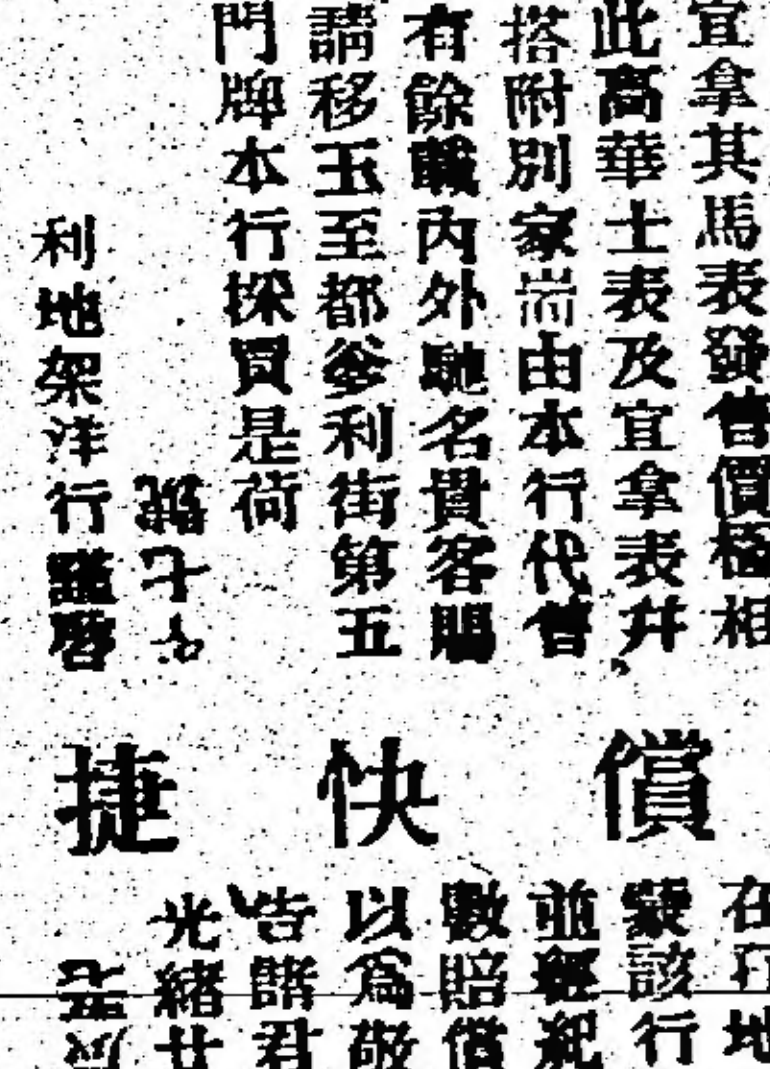 宜拿其馬表發售價極相
此高華士表及宜拿表幷
搭附別家耑由本行代售
有餘載內外馳名貴客賜
請移玉至都爹利街第五
門牌本行採買是荷
號七
利地架洋行謹啓
償快捷
在打地
蒙該行
並經紀
數賠償
以爲敬
告諸君
光緒廿